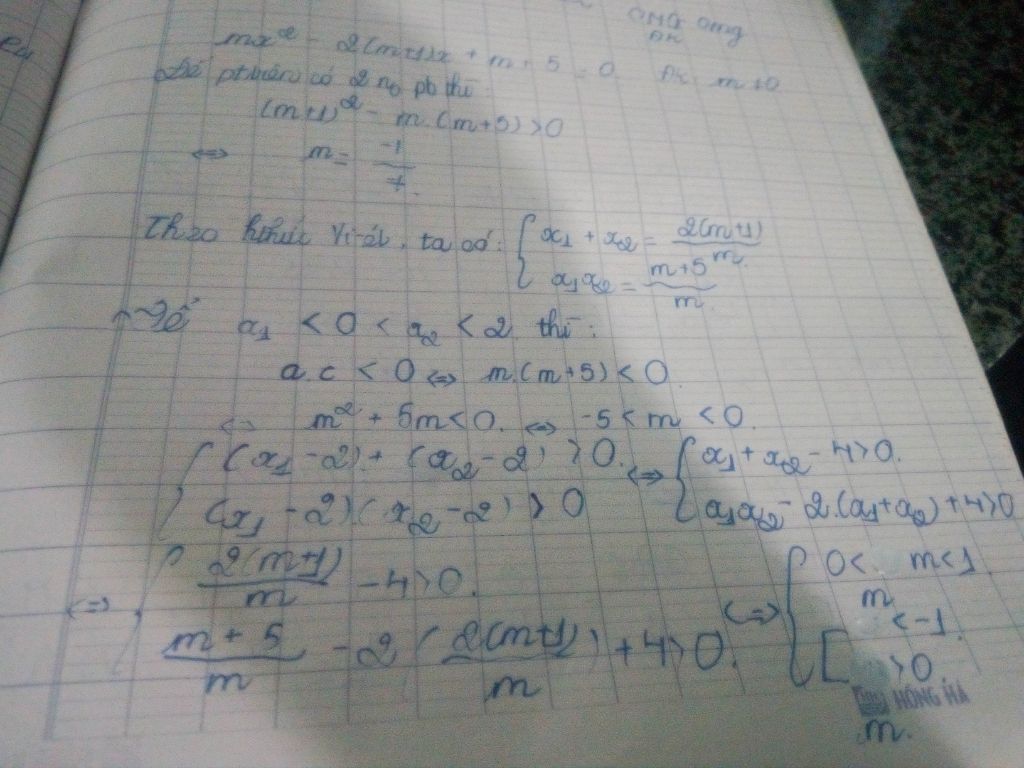 mx² - 2(m+1)x + m + 5 = 0. ĐK: m ≠ 0
Để pt luôn có 2 no pb thì:
(m+1)² - m.(m+5) > 0
⇔ m = -1/7.
Theo hthức Vi-ét, ta có: { x₁ + x₂ = 2(m+1)/m.
x₁x₂ = m+5/m
Để x₁ < 0 < x₂ < 2 thì:
a.c < 0 ⇔ m.(m+5) < 0.
⇔ m² + 5m < 0. ⇔ -5 < m < 0.
{ (x₁ - 2) + (x₂ - 2) > 0. ⇔ { x₁ + x₂ - 4 > 0.
(x₁ - 2)(x₂ - 2) > 0 x₁x₂ - 2.(x₁+x₂) + 4 > 0
⇔ { 2(m+1)/m - 4 > 0. ⇔ { 0 < m < 1
m + 5/m - 2 (2(m+1)/m) + 4 > 0. [ m < -1.
> 0
HỒNG HÀ
m.